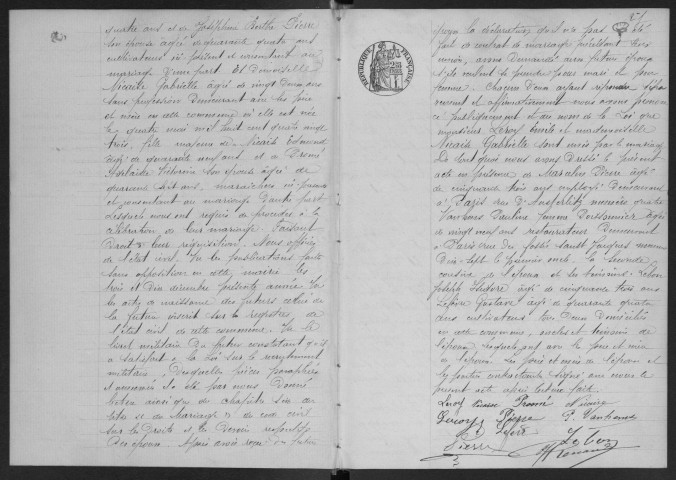 quatre ans et de Joséphine Berthe Pierre
son épouse âgée de quarante quatre ans
cultivateurs ici présent et consentant au
mariage d'une part. Et Demoiselle
Nicaise Gabrielle âgée de vingt deux ans
sans profession demeurant avec ses père
et mère en cette commune où elle est née
le quatre mai mil huit cent quatre vingt
trois, fille majeure de Nicaise Edmond
âgé de quarante neuf ans et de Promé
Victorine son épouse âgée de
quarante huit ans, ici présents
et consentant au mariage d'autre part
Lesquels nous ont requis de procéder à la
célébration de leur mariage. Faisant
Droit à leur réquisition, Nous officier
de l'état civil. Vu les publications faites
sans opposition en cette mairie les
trois et dix décembre présente année. Vu
les actes de naissance des futurs celui de
la future inscrit sur les registres de
l'état civil de cette commune. Vu le
livret militaire du futur constatant qu'il
a satisfait à la loi sur le recrutement
militaire, Desquelles pièces paraphées
il a été par nous Donné
lecture ainsi que du chapitre six du
titre six du Mariage du code civil
sur les Droits et les Devoirs respectifs
Des époux. Après avoir reçu du futur
RÉPUBLIQUE FRANÇAISE
la déclaration qu'il n'a pas été
fait de contrat de mariage
avons demandé aux futurs époux
s'ils veulent se prendre pour mari et pour
femme. Chacun d'eux ayant répondu
et affirmativement nous avons prononcé
publiquement et au nom de la loi que
monsieur Leroy Emile et mademoiselle
Nicaise Gabrielle sont unis par le mariage
De tout quoi nous avons Dressé le présent
acte en présence de Marceline Pierre âgé
de cinquante trois ans employé Demeurant
à Paris rue D'Austerlitz numéro quatre
âgée
de vingt neuf ans restaurateur Demeurant
à Paris rue des fossés Saint Jacques numéro
Dix sept le premier oncle la seconde
cousine de l'époux et les témoins Lebon
Joseph Isidore âgé de cinquante trois ans
Lefèvre Gustave âgé de quarante quatre
ans cultivateurs tous Deux Domiciliés
en cette commune, oncles et témoins de
l'épouse, lesquels ont avec les père et mère
de l'époux, les père et mère de l'épouse et
les parties contractantes signé avec nous le
présent acte après lecture faite.
Leroy Nicaise Promé Nicaise
Leroy Pierre
Lefèvre
Pierre Lebon